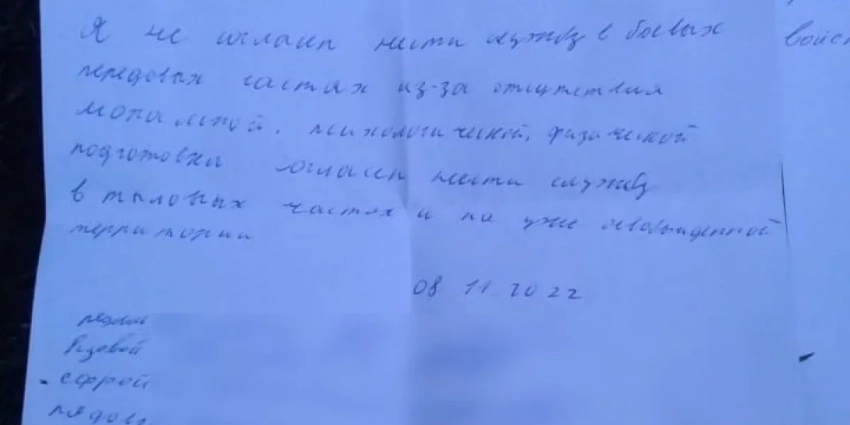 Я не согласен нести службу в боевых
войск
передовых частях из-за отсутствия
моральной, психологической, физической
подготовки согласен нести службу
в тыловых частях и на уже освобожденной
территории
08 11 2022
рядовой
Рядовой
рядов